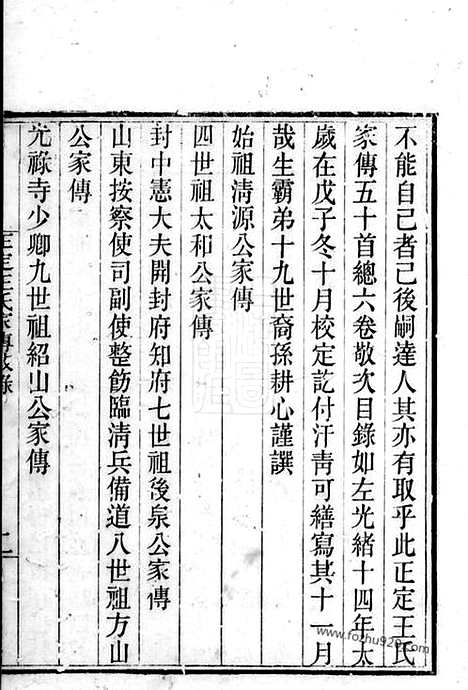 不能自己者已後嗣達人其亦有取乎此正定王氏
家傳五十首總六卷敬次目錄如左光緒十四年太
歲在戊子冬十月校定訖付汗青可繕寫其十一月
哉生霸弟十九世裔孫耕心謹譔
始祖清源公家傳
四世祖太和公家傳
封中憲大夫開封府知府七世祖後泉公家傳
山東按察使司副使整飭臨清兵備道八世祖方山
公家傳
光祿寺少卿九世祖紹山公家傳
正定王氏家傳敘錄
二
www.fozhu920.com